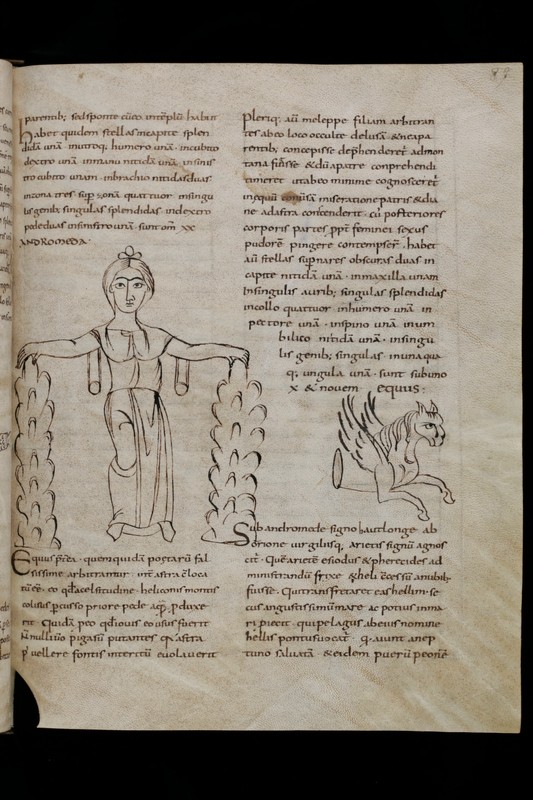 parentib; sed sponte cū eo interēptū habiτ
habet quidem stellas in capite splen
didā unā · in utroq; humero unā · in cubito
dextro unā in manu nitidā unā · in sinis
tro cubito unam · in brachio nitidas duas
in zona tres sup zonā quattuor in singu
lis genib; singulas splendidas in dextro
pede duas in sinistro unā · sunt om̄ xx
ANDROMEDA
Equus p̄terea · quem quidā poetarū fal
sissime arbitrantur
tū ēē · eo qđ
colusus pcusso priore pede
rit · Quidā
N nullino pigasū putantes
p uellere fontis interitū euolauerit
89
Pleriq; aū meleppe filiam arbitran
tes ab eo loco occulte delusā & ne a pa
rentib; concepisse dephenderet' ad mon
tana fuisse & dū a patre conprehendi
timeret ut ab eo minime cognosceret'
in equū cōuisā miseratione patris & dia
ne ad astra contenderit · cū posteriores
corporis partes ppt feminei sexus
pudorē pingere contempser̄ · habet
aū stellas sup nares obscuras duas in
capite nitidā unā · in maxilla unam
In singulis aurib; singulas splendidas
in collo quattuor in humero unā in
pectore unā · in spino unā in um
bilico nitidā unā · in singu
lis genib; singulas · in una qua
q; ungula unā · sunt sub uno
x & nouem · equus :
Sub andromede signo haut longe ab
orione uirgiliisq; arietis signū agnos
cit' · Quē ariete esiodus & pherecides ad
ministrandū frixe & heli
fuisse · Qui transfretaret eas hellim · se
cus angustissimū mare ac potius in ma
ri piecit · qui pelagus ab eius nomine
hellis pontus uocat' · q · aiunt a nep
tuno saluatā · & eidem puerū peonē